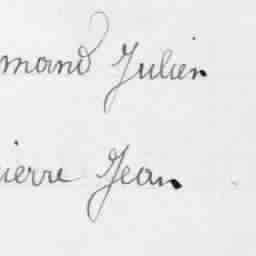 mand Julien
ierre Jean